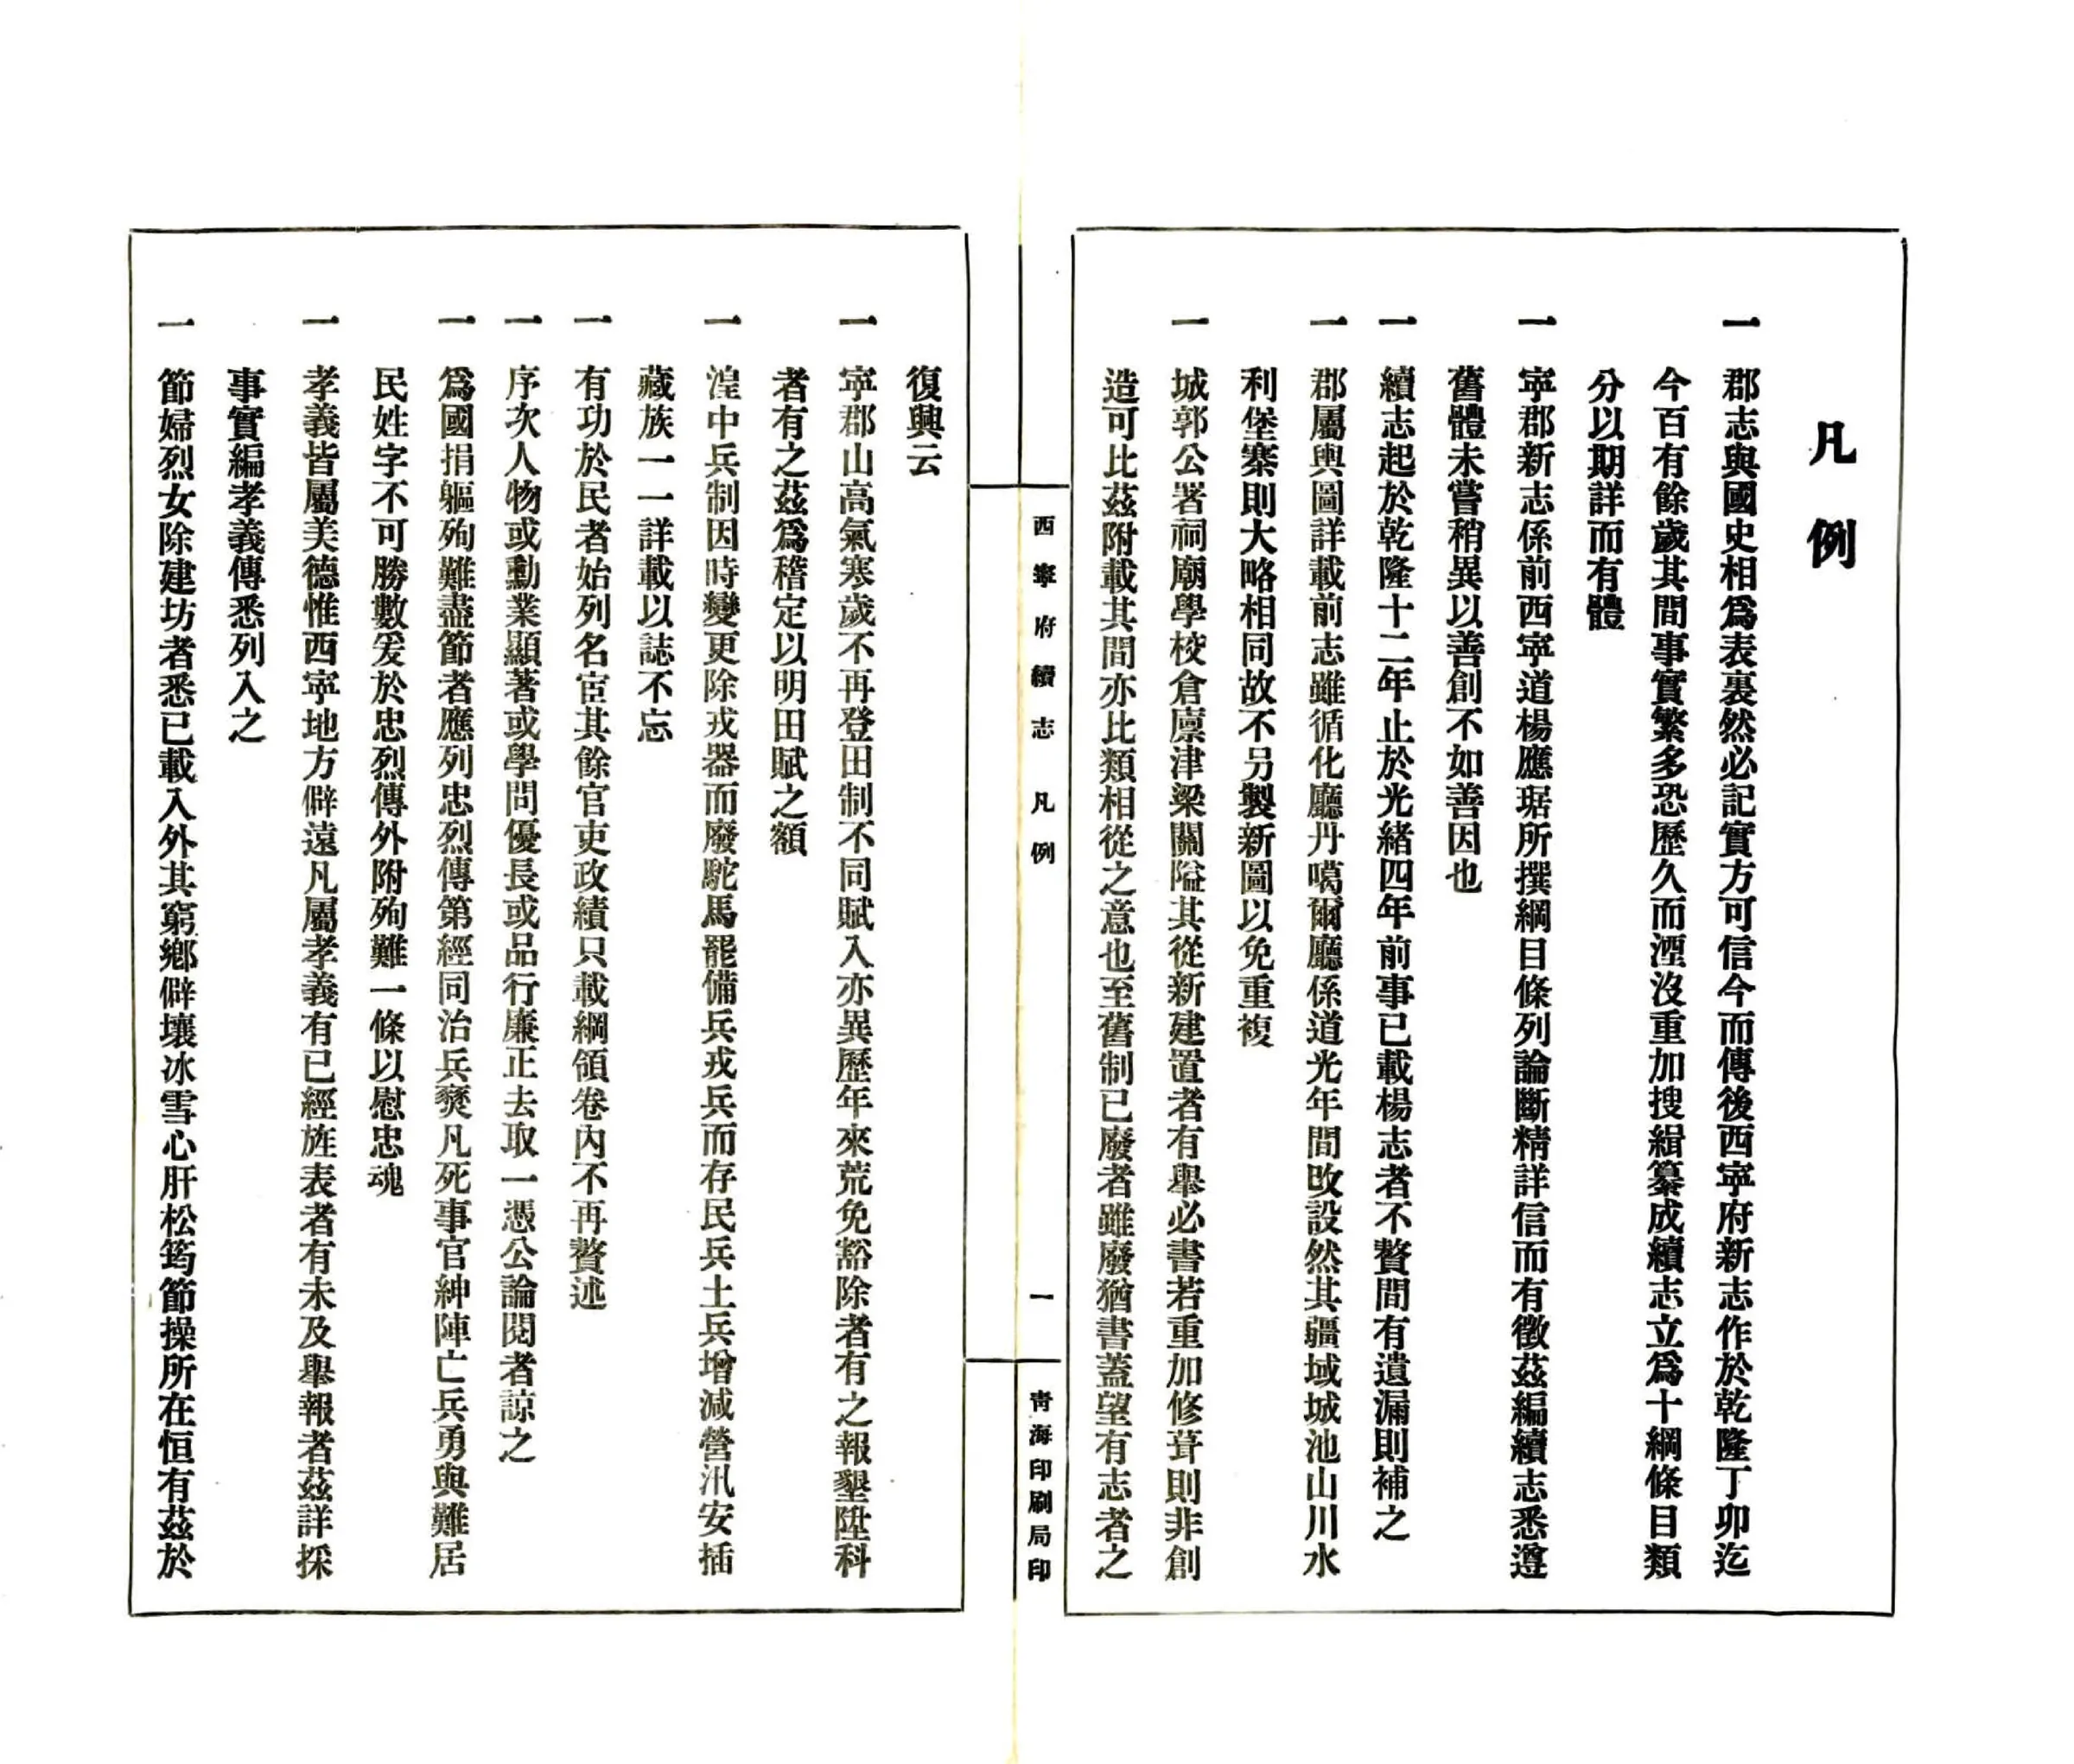 凡例
一 郡志與國史相爲表裏然必記實方可信今而傳後西寧府新志作於乾隆丁卯迄
今百有餘歲其間事實繁多恐歷久而湮沒重加搜緝纂成續志立爲十綱條目類
分以期詳而有體
一 寧郡新志係前西寧道楊應琚所撰綱目條列論斷精詳信而有徵茲編續志悉遵
舊體未嘗稍異以善創不如善因也
一 續志起於乾隆十二年止於光緒四年前事已載楊志者不贅間有遺漏則補之
一 郡屬輿圖詳載前志雖循化廳丹噶爾廳係道光年間改設然其疆域城池山川水
利堡寨則大略相同故不另製新圖以免重複
一 城郭公署祠廟學校倉廩津梁關隘其從新建置者有舉必書若重加修葺則非創
造可比茲附載其間亦比類相從之意也至舊制已廢者雖廢猶書蓋望有志者之
西寧府續志 凡例
一
青海印刷局印
復興云
一 寧郡山高氣寒歲不再登田制不同賦入亦異歷年來荒免豁除者有之報墾陞科
者有之茲爲稽定以明田賦之額
一 湟中兵制因時變更除戎器而廢駝馬罷備兵戎兵而存民兵土兵增减營汛安插
藏族一一詳載以誌不忘
一 有功於民者始列名宦其餘官吏政績只載綱領卷內不再贅述
一 序次人物或勳業顯著或學問優長或品行廉正去取一憑公論閱者諒之
一 爲國捐軀殉難盡節者應列忠烈傳第經同治兵燹凡死事官紳陣亡兵勇與難居
民姓字不可勝數爰於忠烈傳外附殉難一條以慰忠魂
一 孝義皆屬美德惟西寧地方僻遠凡屬孝義有已經旌表者有未及舉報者茲詳採
事實編孝義傳悉列入之
一 節婦烈女除建坊者悉已載入外其窮鄉僻壤冰雪心肝松筠節操所在恒有茲於